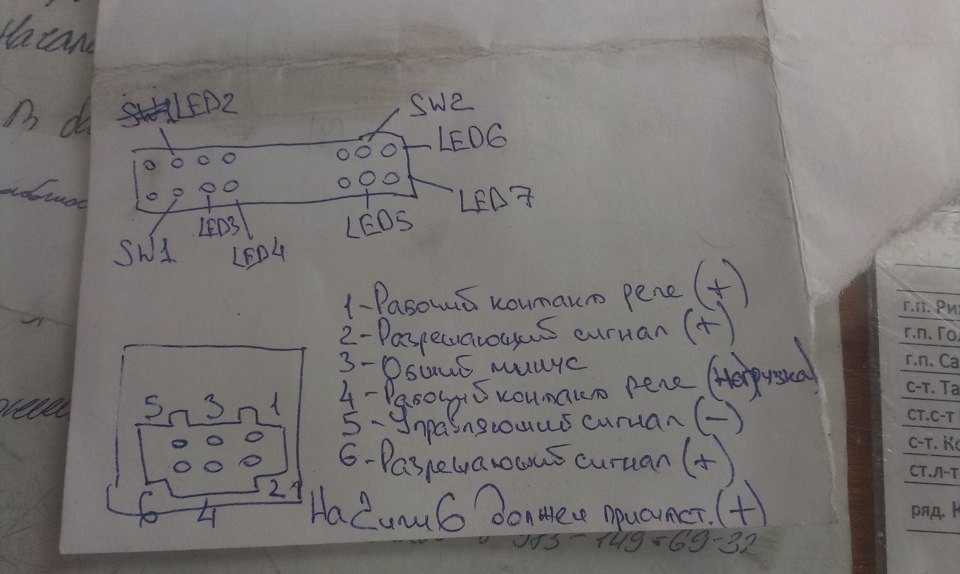 Начал
В
SW1 LED2
SW2
LED6
LED7
LED5
SW1
LED3
LED4
1-Рабочий контакт реле (+)
2-Разрешающий сигнал (+)
3-Общий минус
4-Рабочий контакт реле (Нагрузка)
5-Управляющий сигнал (-)
6-Разрешающий сигнал (+)
5 3 1
6 4 2
На 2 или 6 должен присутст. (+)
г.п. Ри
г.п. Го
г.п. Са
с-т. Та
ст.с-т
с-т. Ко
ст.л-т
ряд. К